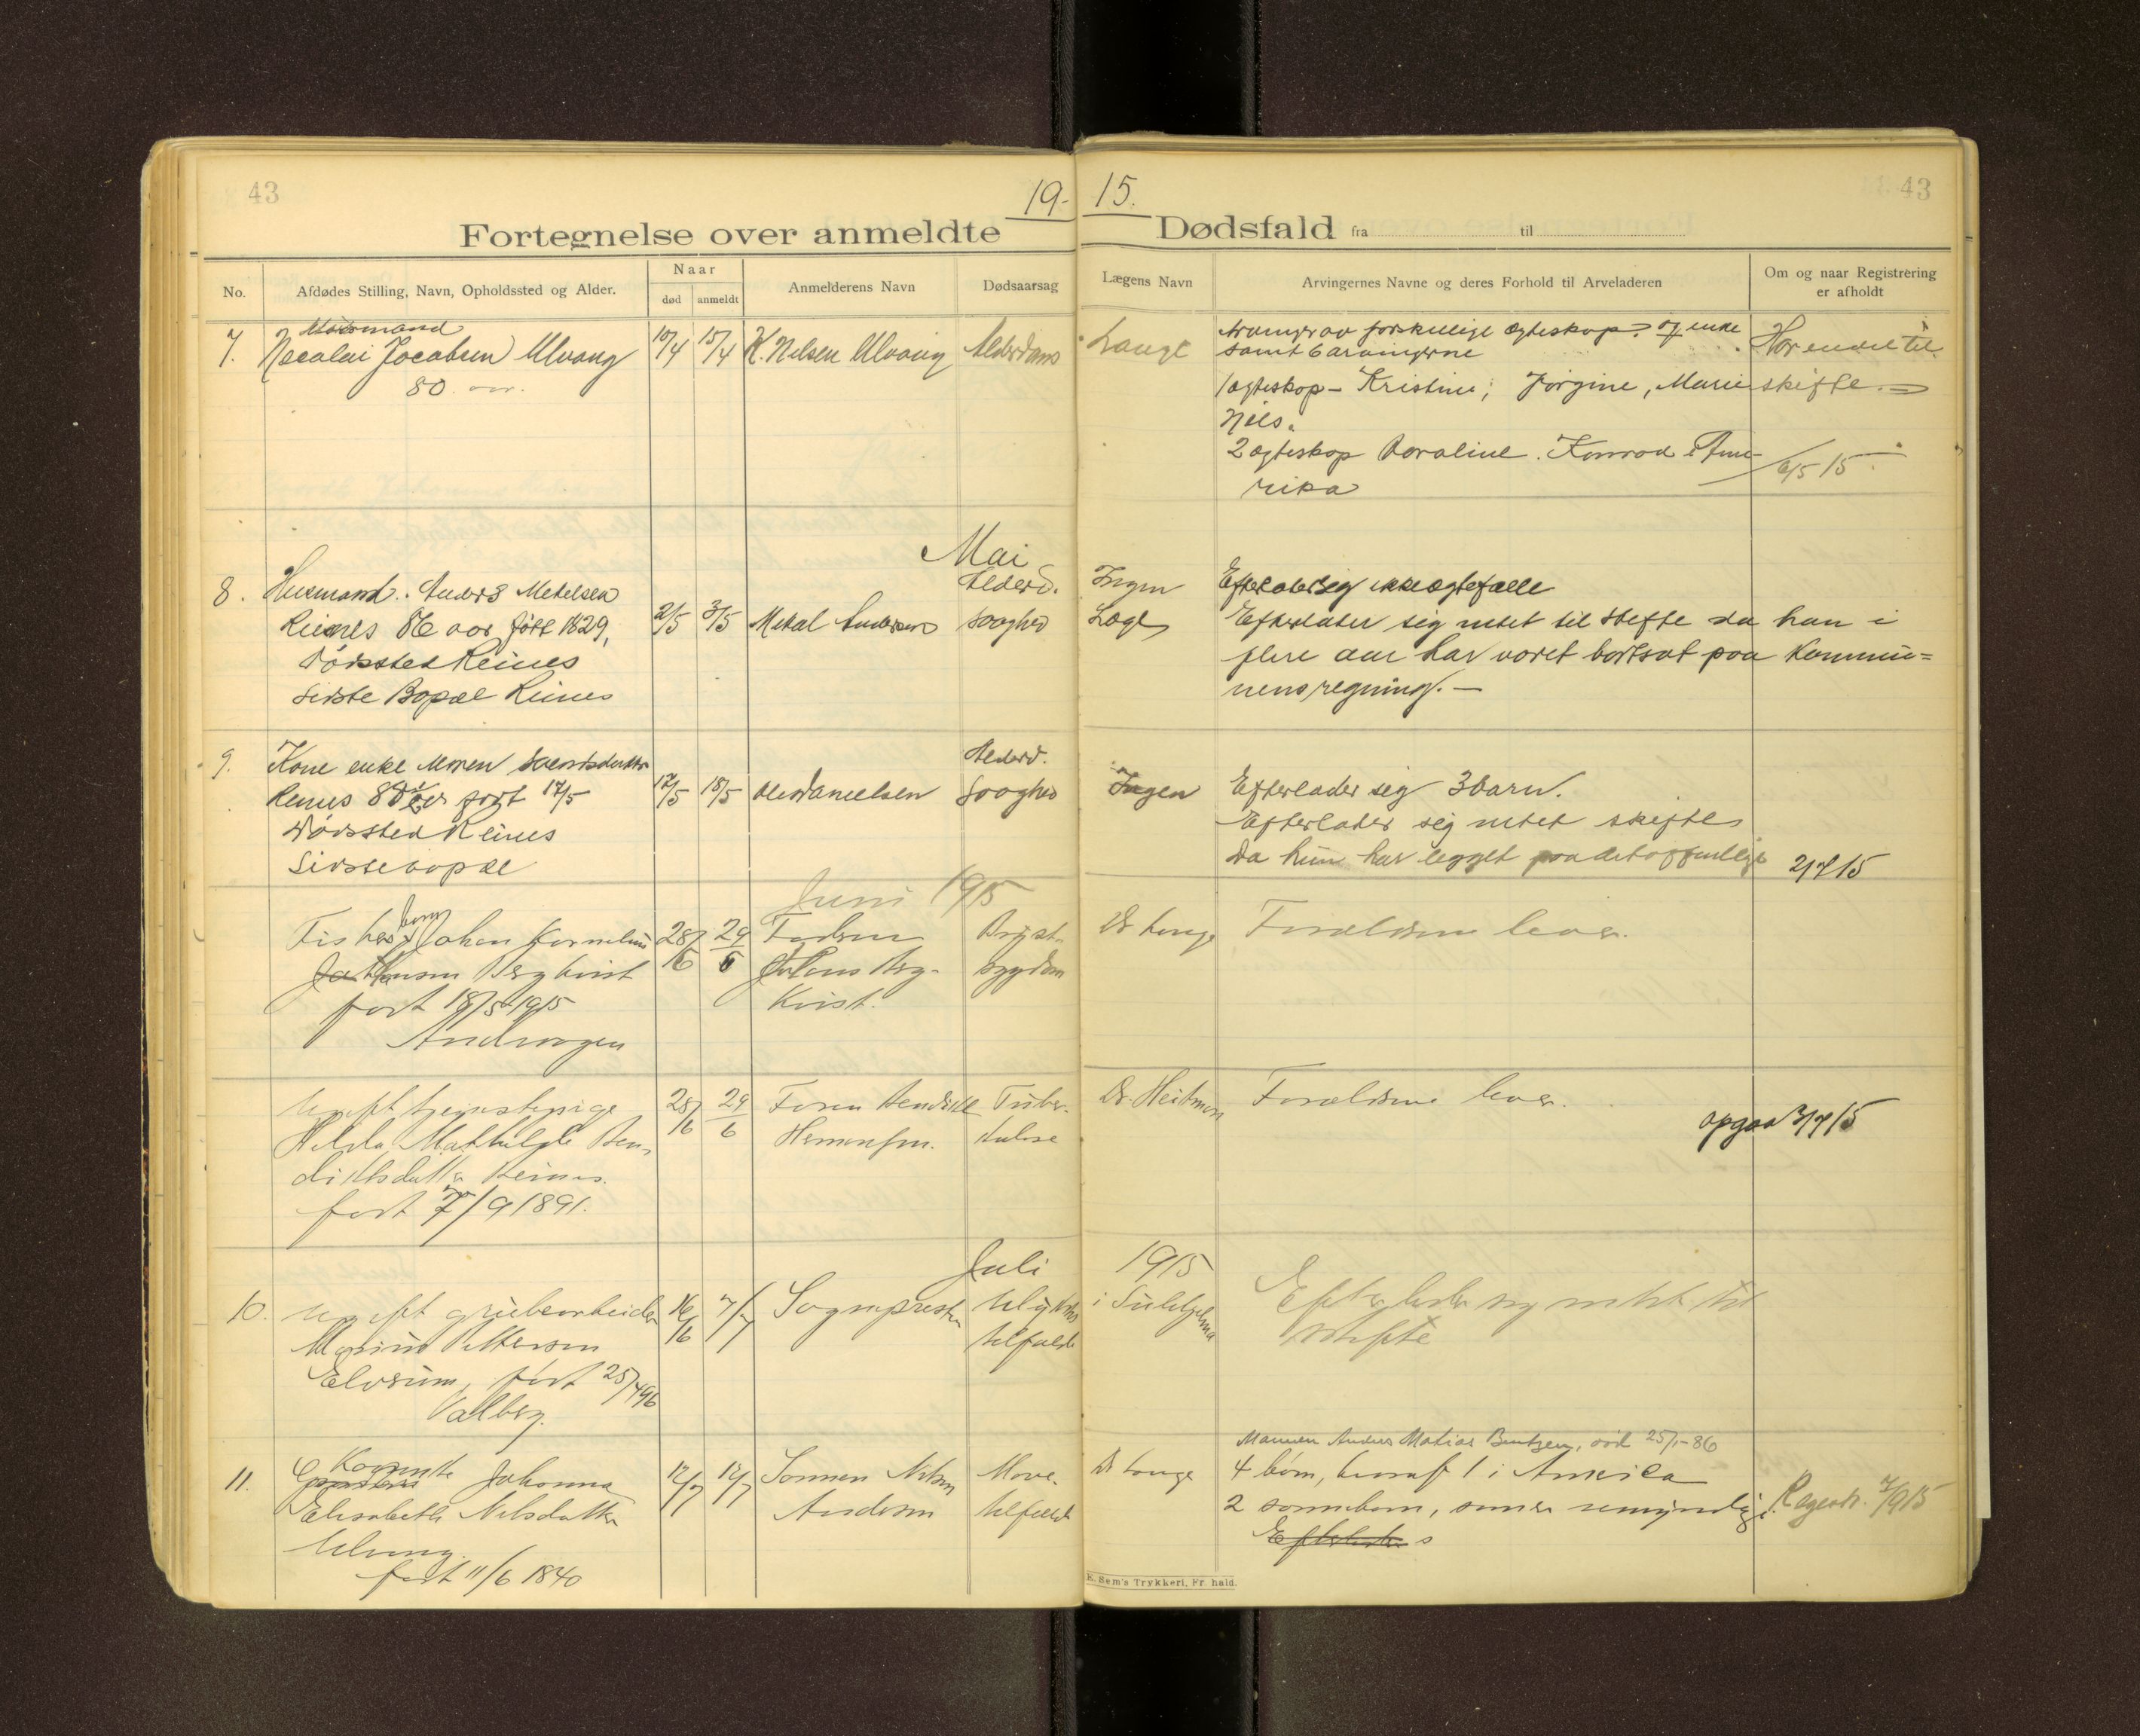 43
19-
15.
43
Fortegnelse over anmeldte
Dødsfald fra til
No.
Afdødes Stilling, Navn, Opholdssted og Alder.
Naar
død
anmeldt
Anmelderens Navn
Dødsaarsag
Lægens Navn
Arvingernes Navne og deres Forhold til Arveladeren
Om og naar Registrering
er afholdt
7. Jacobsen Ulvang 15/4 15/4 K. Nilsen Ulvang Alderdoms
80 aar.
Lange
arvinger av forskjellige ægteskap og enke
samt 6 arvingerne
1 ægteskap - Kristine, Jørgine, Marie
Nils.
2 ægteskap Konrad i Ame-
rika
Har endel til
skifte.
6/5 15
Mai
8. Husmand. Anders Mekelsen
Reines 86 aar født 1829,
Dødssted Reines
Sidste Bopæl Reines
2/5 3/5 Mekal Andersen
Alderd.
Ingen
Læge
Efterlater sig ikke ægtefælle
Efterlater sig intet til skifte da han i
flere aar har været bortsat paa Kommu=
nens regning. —
9. Kone enke
Reines født 17/5
Dødssted Reines
Sidste bopæl
17/5 18/5 Danielsen
Alderd.
Ingen
Efterlader sig 3 barn.
Efterlater sig intet skifte
da hun har legget paa det offentlige
2/7 15
Juni 1915
Fisker barn Johan Kornelius
Bergkvist
født 18/5 1915
Andvaagen
28/6 29/6 Faderen
Johans Berg-
Kvist.
Bryst-
sygdom
Dr Lange
Forældrene lever.
ugift tjenestepige
Hilda Mathilde Ben-
diktsdatter Reines.
født 7/9 1891.
28/6 29/6 Faren Bendikt
Hermansen.
Tuber-
kulose
Dr. Heitman
Forældrene lever.
opgaa 3/7 15
Juli
1915
10. ugift grubearbeider
Marius Pettersen
Elvsum, født 25/4 96
Valberg.
16/6 7/7 Sognepresten
Ulykkes
tilfælde
i Sulitjelma
Efterlader sig intet til
skifte
11. Johanna
Elisabeth Nilsdatter
Ulvang.
født 11/6 1840
12/7 12/7 Sønnen Nilsen
Andersen
Mave-
tilfælde
Dr Lange
Mannen Anders Matias Bentzen, død 25/1-86
4 børn, hvoraf 1 i Amerika
2 sønnebørn, som er umyndige.
Efterlader s
Registr. 7/9 15
E. Sem's Trykkeri, Fr. hald.